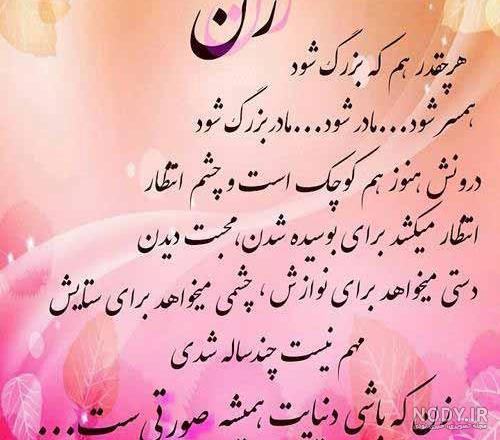 زن
هر چقدر هم که بزرگ شود
همسر شود...مادر شود...مادربزرگ شود
درونش هنوز هم کوچک است و چشم انتظار
انتظار میکشد برای بوسیده شدن، محبت دیدن
دستی میخواهد برای نوازش ، چشمی میخواهد برای ستایش
مهم نیست چند ساله شدی
که باشی دنیایت همیشه صورتی ست...
NODY.IR